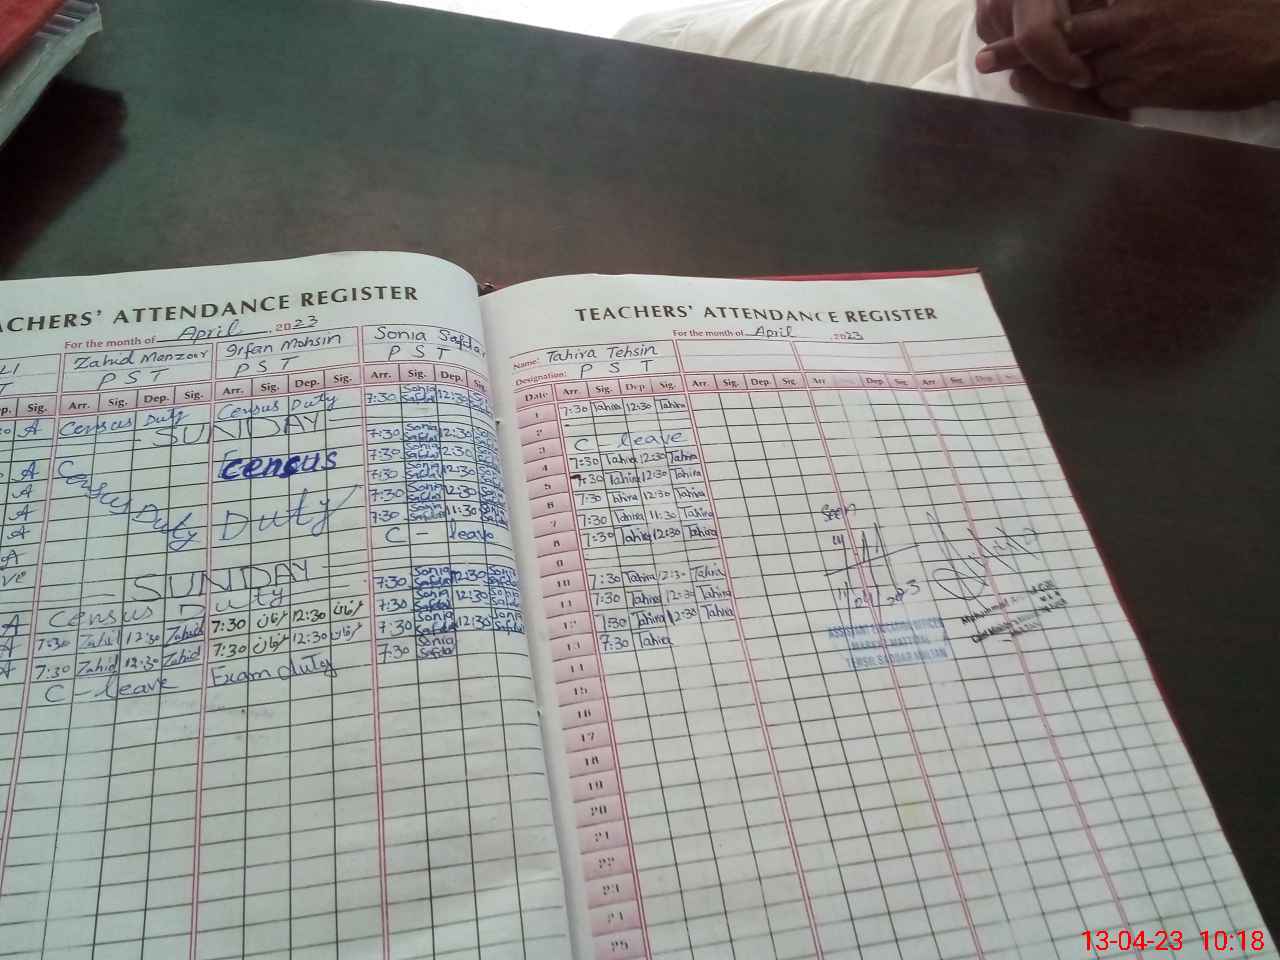 ACHERS' ATTENDANCE REGISTER
For the month of April, 2023
Zahid Manzoor Irfan Mohsin Sonia Safdar
PST PST PST
Sig. Arr. Sig. Dep. Sig. Arr. Sig. Dep. Sig. Arr. Sig. Dep. Sig.
A Census Duty Census Duty 7:30 Sonia Safdar 12:30
SUNDAY
A Census Duty census Duty 7:30 Sonia Safdar 12:30
A 7:30 Sonia Safdar 12:30
A 7:30 Sonia Safdar 12:30
A 7:30 Sonia Safdar 12:30
A 7:30 Sonia Safdar 11:30
C - leave
SUNDAY
A Census Duty 7:30 Sonia Safdar 12:30
A 7:30 Zahid 12:30 Zahid 7:30 عرفان 12:30 عرفان 7:30 Sonia Safdar 12:30
A 7:30 Zahid 12:30 Zahid 7:30 عرفان 12:30 عرفان 7:30 Sonia Safdar 12:30
C - leave Exam duty 7:30 Sonia Safdar
TEACHERS' ATTENDANCE REGISTER
For the month of April 2023
Name: Tahira Tehsin
Designation: PST
Date Arr. Sig. Dep. Sig. Arr. Sig. Dep. Sig. Arr Dep. Sig. Arr. Sig. Dep.
1 7:30 Tahira 12:30 Tahira
2
3 C leave
4 7:30 Tahira 12:30 Tahira
5 7:30 Tahira 12:30 Tahira
6 7:30 Tahira 12:30 Tahira
7 7:30 Tahira 11:30 Tahira
8 7:30 Tahira 12:30 Tahira
9
10 7:30 Tahira 12:30 Tahira
11 7:30 Tahira 12:30 Tahira
12 7:30 Tahira 12:30 Tahira
13 7:30 Tahira
14
15
16
17
18
19
20
21
22
23
24
25
Seen
ASSISTANT EDUCATION OFFICER
TEHSIL SADDAR MULTAN
13-04-23 10:18